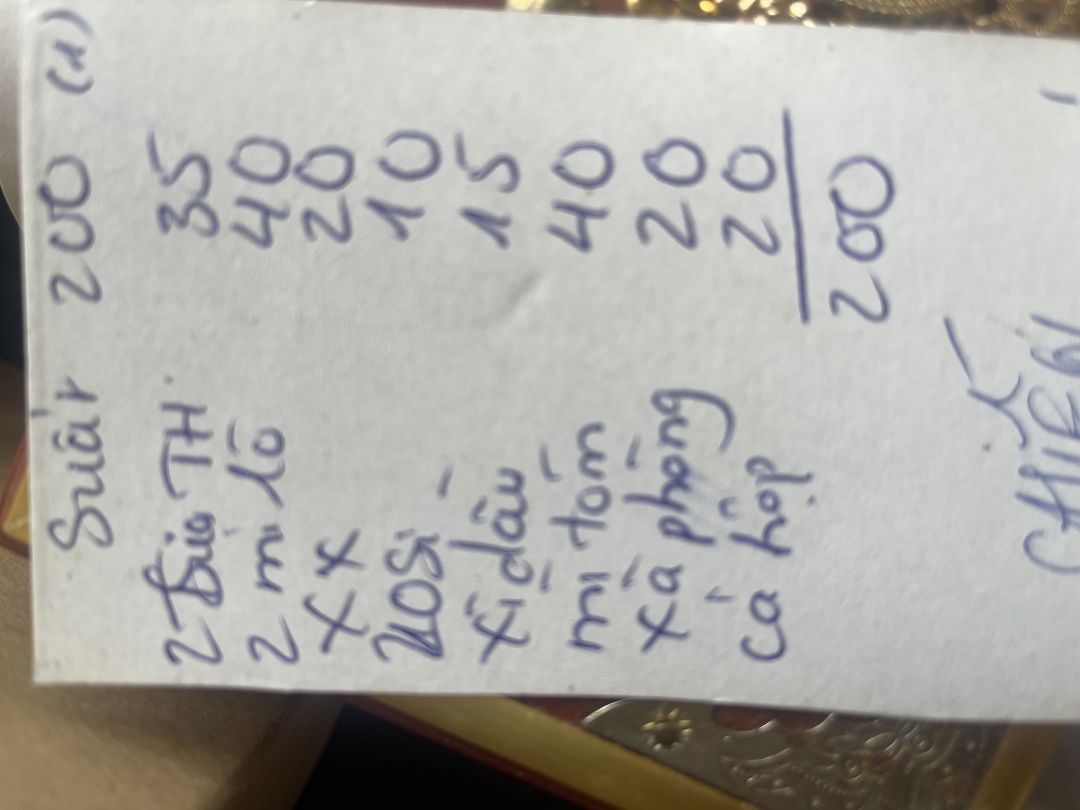 Suất 200 (1)
2 Sữa TH 35
2 mi lô 40
XX 20
10Si 10
xì dầu 15
mì tôm 40
xà phòng 20
cá hộp 20
200